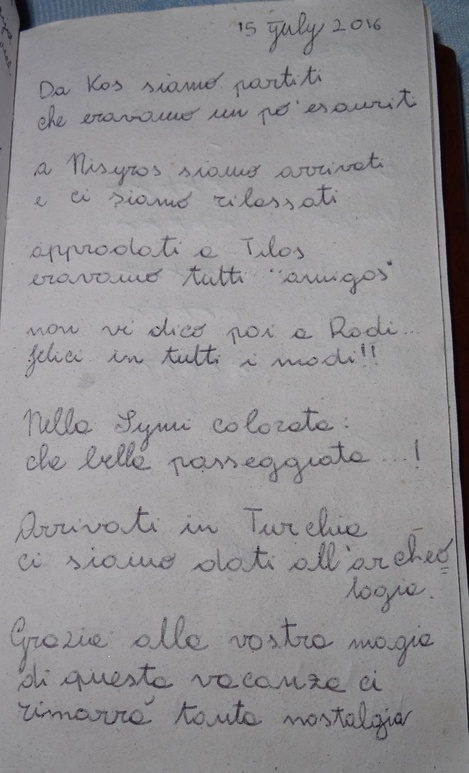 15 July 2016
Da Kos siamo partiti
che eravamo un po' esauriti
a Nisyros siamo arrivati
e ci siamo rilassati
approdati a Tilos
eravamo tutti "amigos"
non vi dico poi a Rodi...
felici in tutti i modi!!
Nella Symi colorata:
che bella passeggiata ...!
Arrivati in Turchia
ci siamo dati all'archeo
logia.
Grazie alla vostra magia
di questa vacanza ci
rimarrà tanta nostalgia